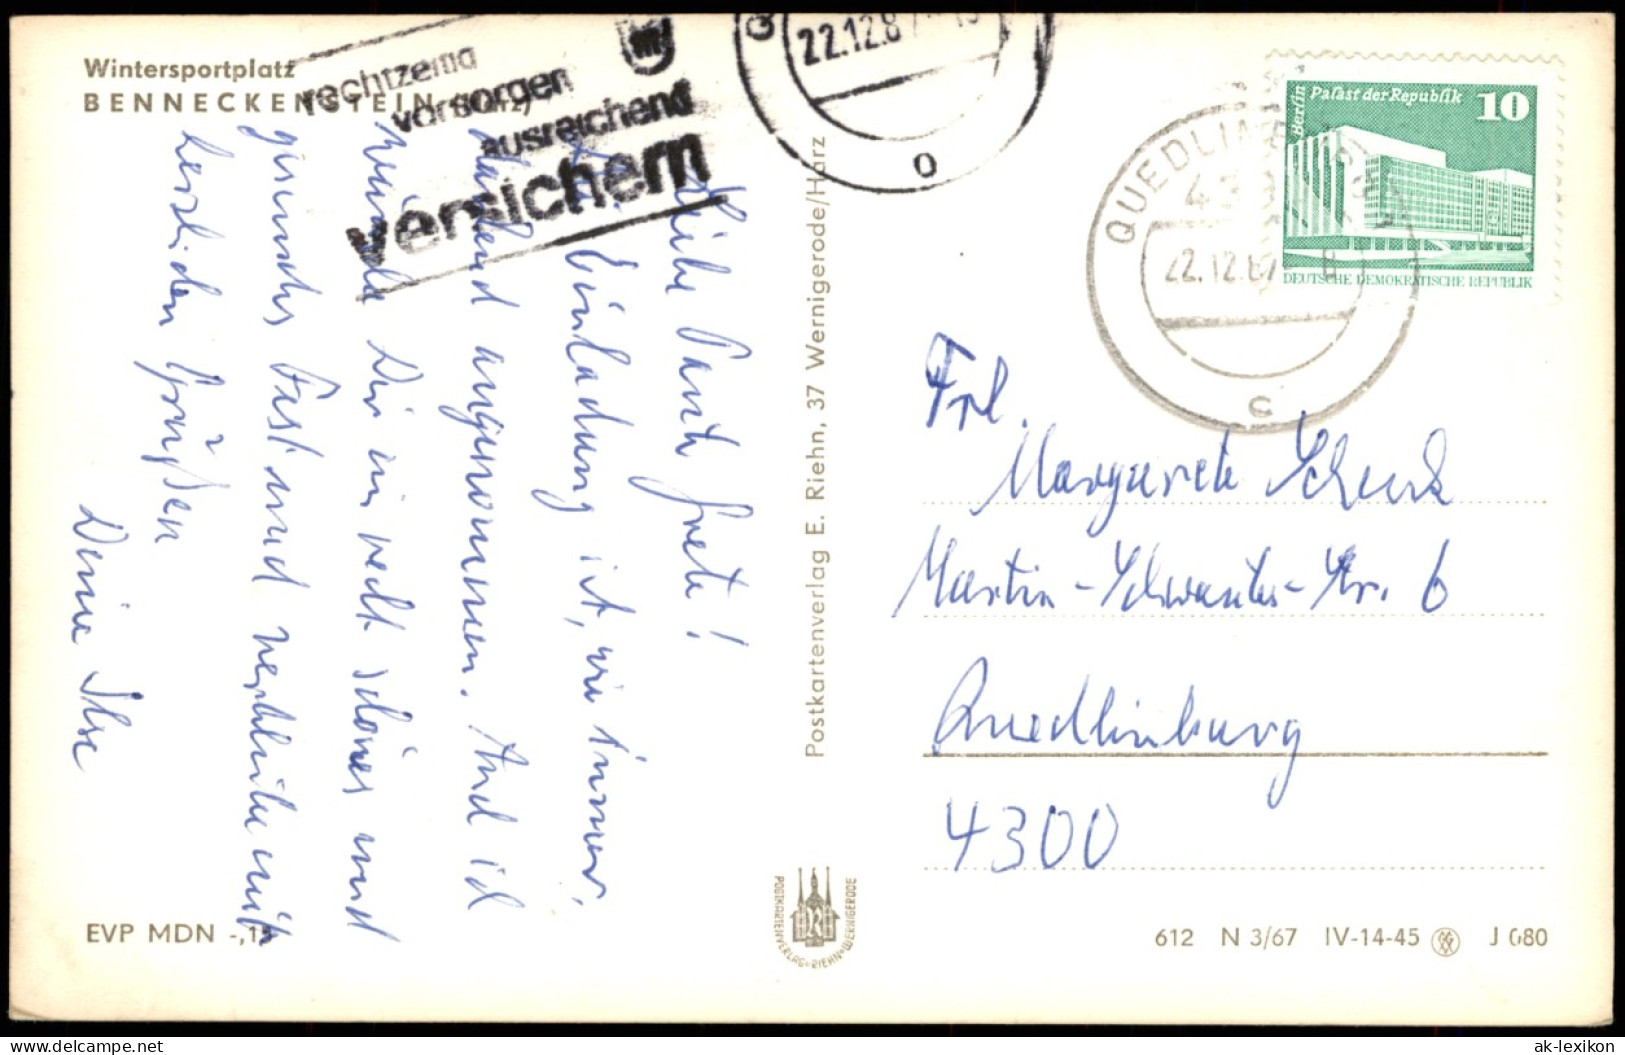 Wintersportplatz
BENNECKENSTEIN (Harz)
rechtzeitig
vorsorgen
ausreichend
versichern
22.12.87
o
QUEDLINBURG 1
43
22.12.87
c
Berlin Palast der Republik 10
DEUTSCHE DEMOKRATISCHE REPUBLIK
Liebe Tante Grete!
Einladung ist, wie immer,
dankend angenommen. Und ich
wünsche Dir ein recht schönes und
gesundes Fest und verbleibe mit
herzlichen Grüßen
Deine Ilse
Postkartenverlag E. Riehn, 37 Wernigerode/Harz
Frl.
Margarete Schenk
Martin-Schwantes-Str. 6
Quedlinburg
4300
POSTKARTENVERLAG·RIEHN·WERNIGERODE
R
EVP MDN -,15
612 N 3/67 IV-14-45 J 080
www.delcampe.net
ak-lexikon